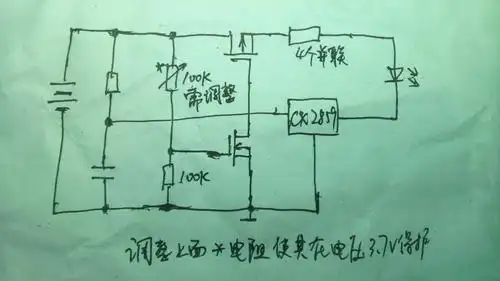 4个并联
*
100K
需调整
CX2859
100K
调整上面*电阻使其在电压3.7V保护